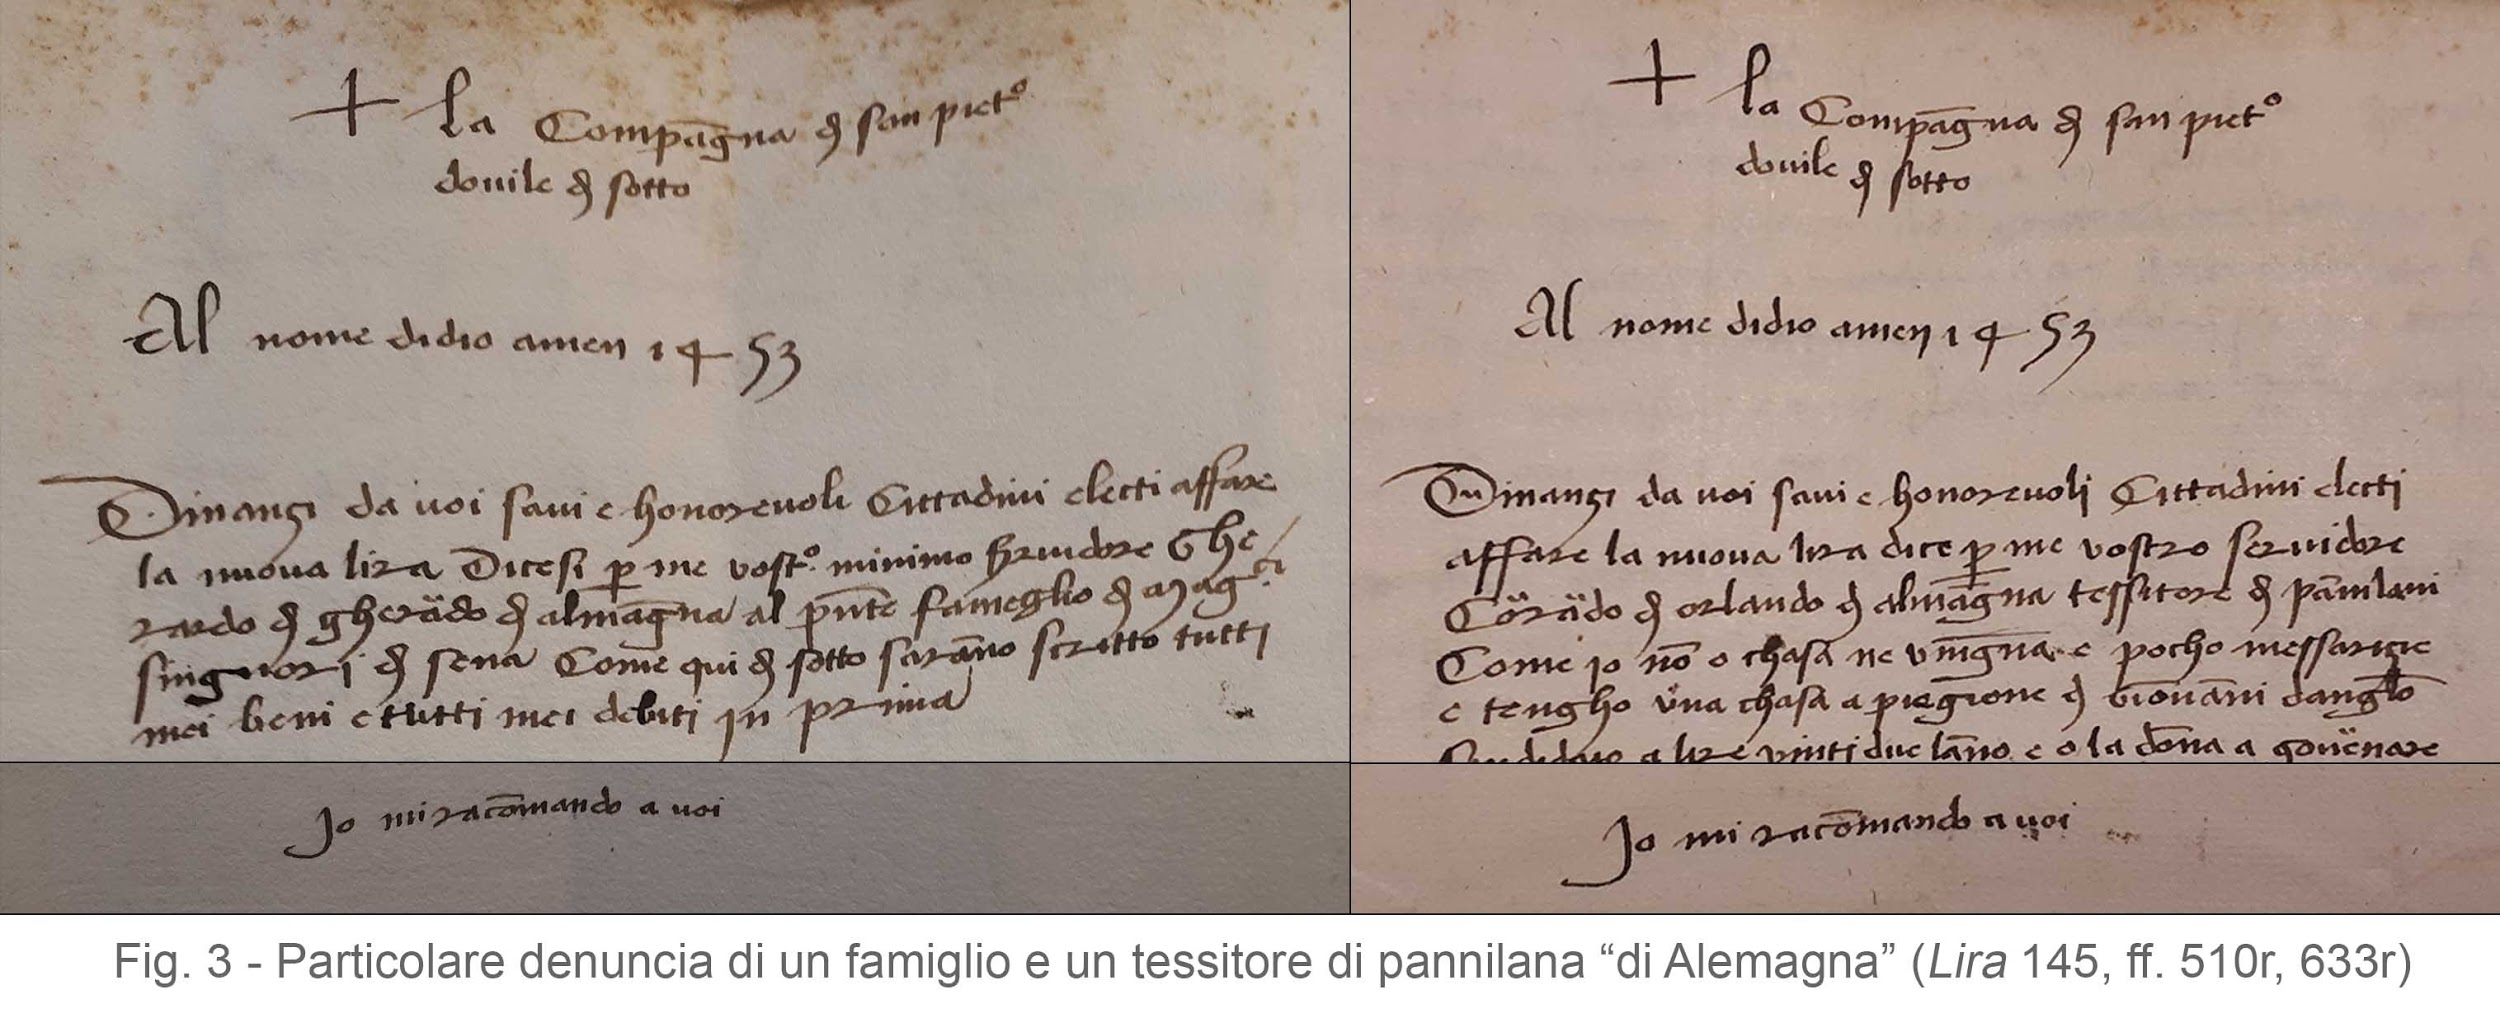 + la Compāgna đ san piet°
douile đ sotto
Al nome didio amen 1453
Dinanzi da uoi saui e honoreuoli Cittadini electi affare
la nuoua lira Dicesi ꝑ me vost° minimo seruidore Ghe/
rardo đ gherädo đ almāgna al pn̄te fameglio đ Mag.ci
singnori đ sena Come qui đ sotto sarāno scritto tutti
mei beni e tutti mei debiti in prima
Io mi racōmando a uoi
+ la Compāgna đ san piet°
douile đ sotto
Al nome didio amen 1453
Dinanzi da uoi saui e honoreuoli Cittadini electi
affare la nuoua lira dice ꝑ me vostro seruidore
Cörädo đ orlando đ almāgna tessitore đ pānilani
Come io nō o chasa ne vīngna e pocho messarizie
e tengho vna chasa a piegione đ Giouāni dangl̄o
a lire vinti due lāno e o la dōna a gouënare
Io mi racōmando a uoi
Fig. 3 - Particolare denuncia di un famiglio e un tessitore di pannilana “di Alemagna” (Lira 145, ff. 510r, 633r)